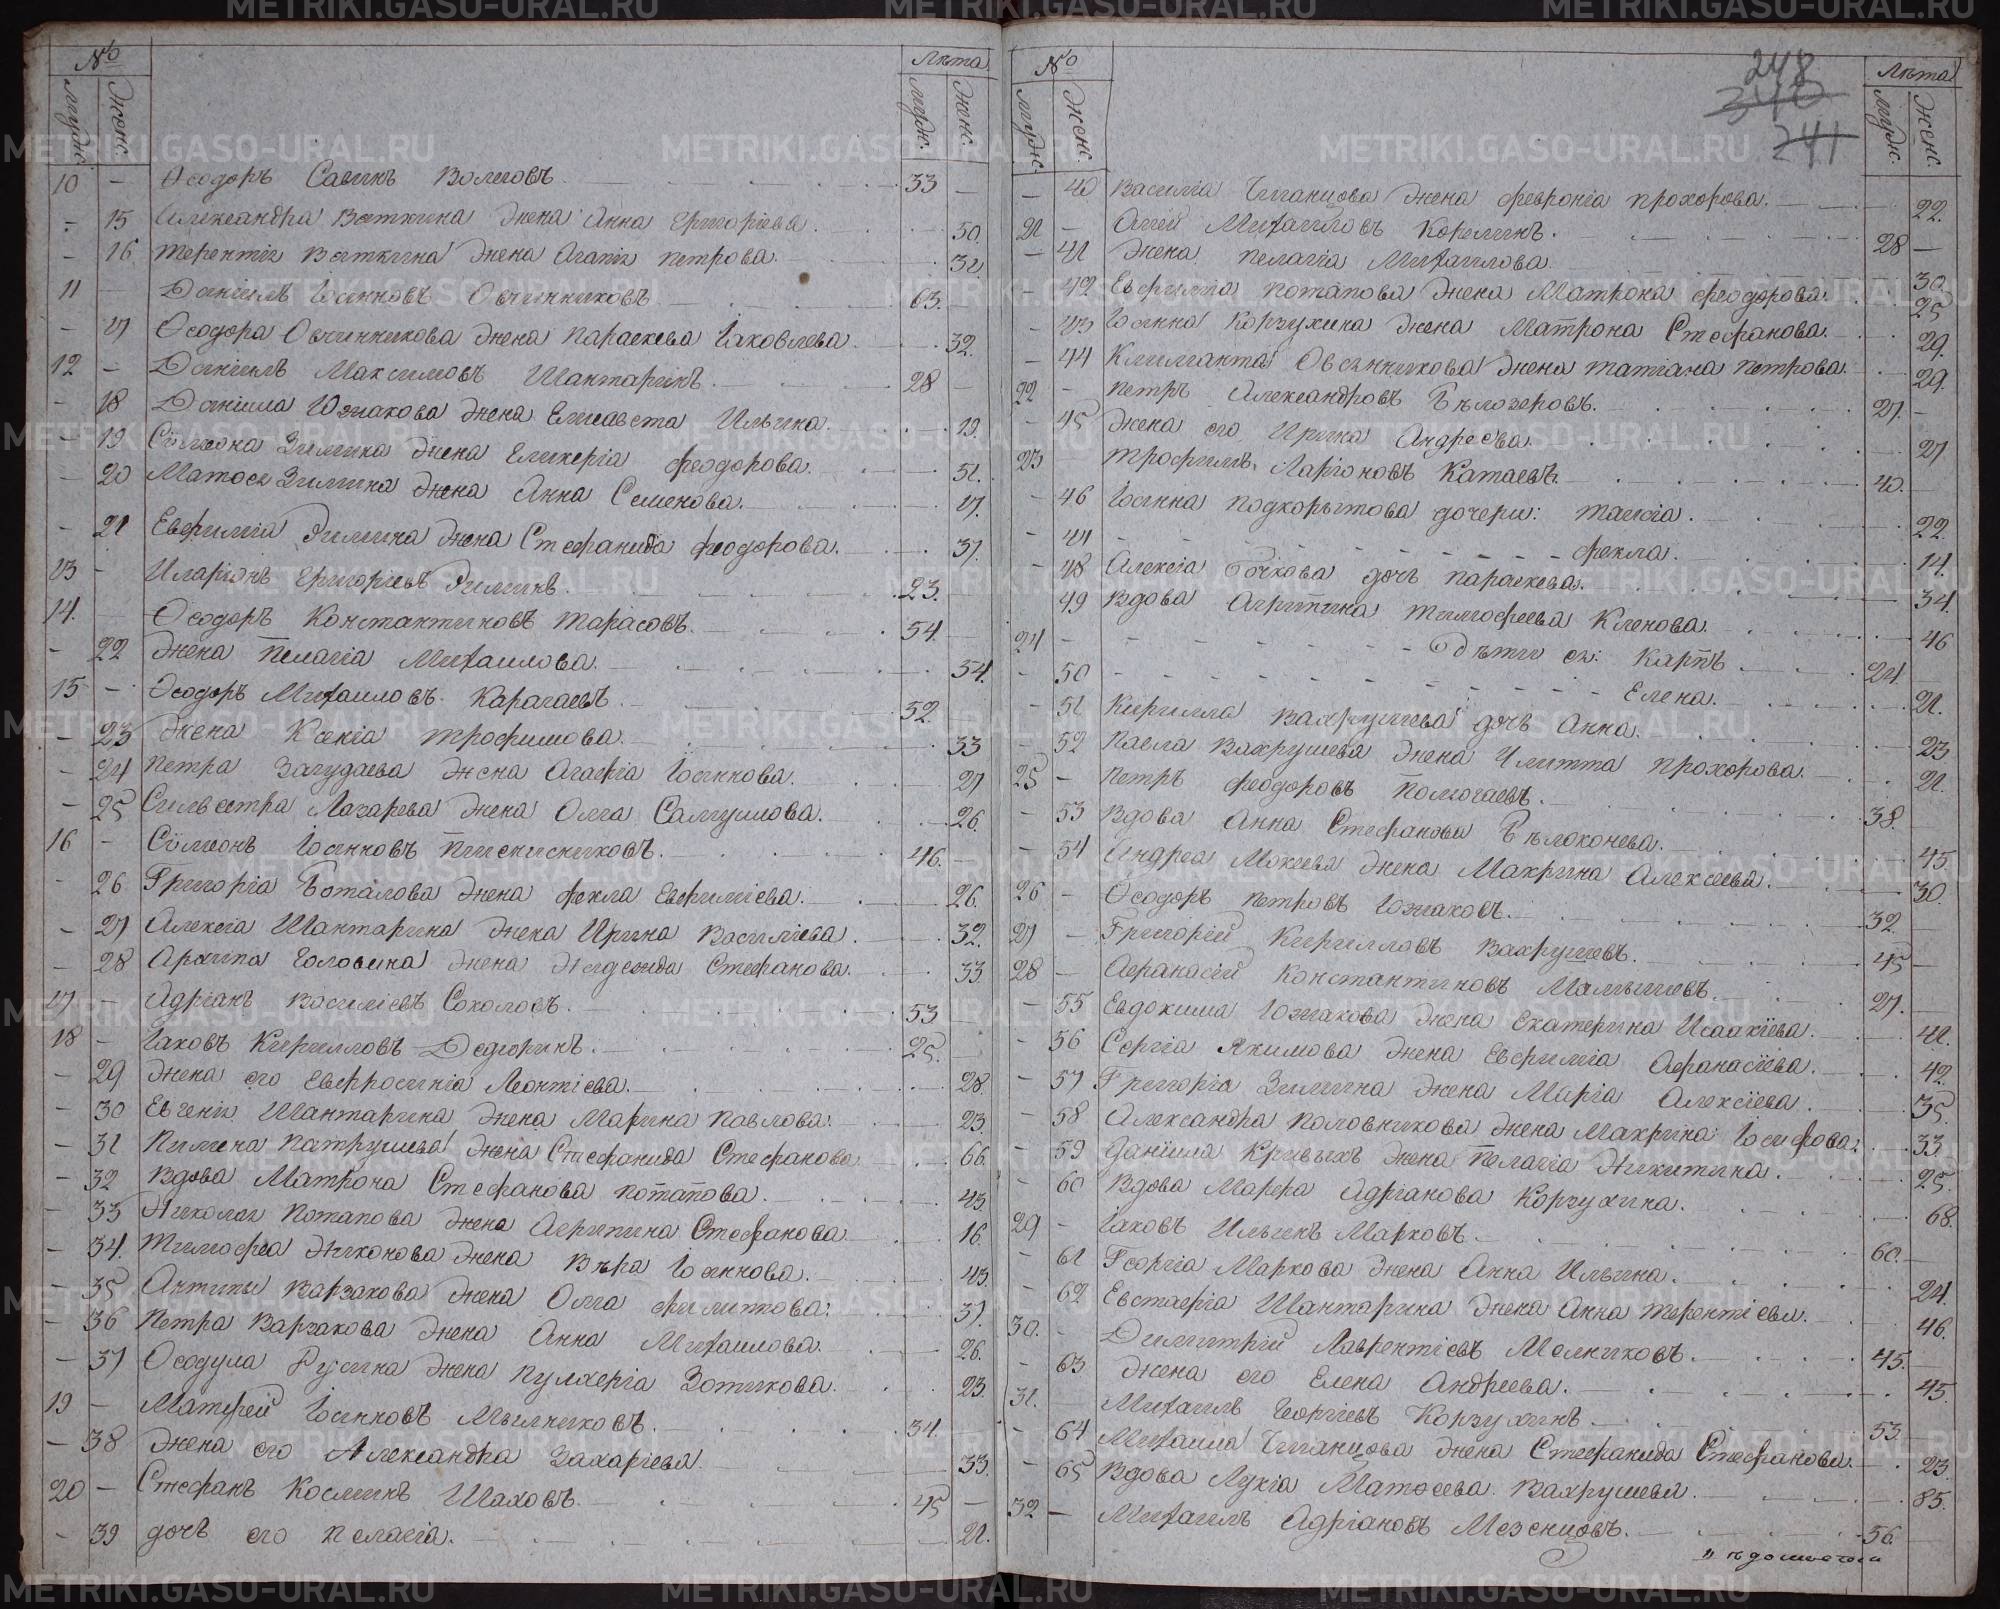 №
Лѣта
мужс.
женс.
мужс.
женс.
10 — Ѳеодоръ Савинъ Волеговъ 33 —
— 15 Александра Вяткина жена Анна Григоріева 30.
— 16 Терентія Вяткина жена Агапія Петрова 32
11 — Даніилъ Іоанновъ Овчинниковъ 63.
— 17 Ѳеодора Овчинникова жена Параскева Іаковлева 32.
12 — Даніилъ Максимовъ Шантаринъ 28 —
— 18 Даніила Южакова жена Елисавета Ильина 19.
— 19 Сѵмеона Зимина жена Гликерія Феодорова 51.
— 20 Матѳея Зимина жена Анна Семенова 27.
— 21 Евфимія Зимина жена Стефанида Феодорова 37.
13 — Иларіонъ Григоріевъ Зиминъ 23.
14. — Ѳеодоръ Константиновъ Тарасовъ 54.
— 22 Жена Пелагія Михаилова 54.
15 — Ѳеодоръ Михаиловъ Карагаевъ 52.
— 23 Жена Ксенія Трофимова 33
— 24 Петра Загудаева жена Агафія Іоаннова 27
— 25 Сильвестра Лазарева жена Олга Самуилова 26.
16 — Сѵмеонъ Іоанновъ 46.
— 26 Григорія Боталова жена Фекла Евфиміева 26.
— 27 Алексія Шантарина жена Ирина Василіева 32.
— 28 Архипа Головина жена Надежда Стефанова 33
17 — Адріанъ Василіевъ Соколовъ 53
18 — Іаковъ Кирилловъ Дедюринъ 25.
— 29 Жена его Евфросинія Леонтіева 28.
— 30 Евгенія Шантарина жена Марина Павлова 23.
— 31 Пимена Патрушева жена Стефанида Стефанова 66.
— 32 Вдова Матрона Стефанова Потапова 43.
— 33 Николая Потапова жена Агрипина Стефанова 16.
— 34. Тимофея Никонова жена Вѣра Іоаннова 43.
— 35 Антипы Варзакова жена Олга Филиппова 37.
— 36 Петра Варзакова жена Анна Михаилова 26.
— 37 Ѳеодула Русина жена Пулхерія Зотикова 23.
19 — Матфей Іоанновъ Мыльниковъ 34.
— 38 Жена его Александра Захаріева 33.
20 — Стефанъ Косминъ Шаховъ 45 —
— 39 дочь его Пелагія 21.
№
248
340
241
Лѣта
мужс.
женс.
мужс.
женс.
— 40 Василія Цыганцова жена Феврониія Прохорова 22.
21 — Агей Михаиловъ Корелинъ 28 —
— 41 Жена Пелагія Михаилова 30.
— 42 Евфимія Потапова жена Матрона Феодорова 25
— 43 Іоанна Корзухина жена Матрона Стефанова 29.
— 44 Климанта Овсянникова жена Татіана Петрова 29.
22 — Петръ Александровъ Бѣлозеровъ 27. —
— 45 Жена его Ирина Андреева 27
23 Трофимъ Ларіоновъ Катаевъ 40. —
— 46 Іоанна Подкорытова дочери: Таисія 22.
— 47 Фекла 14.
— 48 Алексія Бочкова дочь Параскева 34.
— 49 Вдова Агрипина Тимофеева Кленова 46
24 — Дѣти ея: Карпъ 24.
— 50 Елена 21.
— 51 Кирилла Вахрушева дочь Анна 23
— 52 Павла Вахрушева жена Улитта Прохорова 21.
25 — Петръ Феодоровъ 38.
— 53 Вдова Анна Стефанова Бѣлоконева 45
— 54 Андрея Мокеева жена Макрина Алексеева 30
26 — Ѳеодоръ Петровъ Южаковъ 32.
27 — Григорій Кирилловъ Вахрушевъ 45 —
28 — Афанасій Константиновъ Мамышевъ 27.
— 55 Евдокима Южакова жена Екатерина Исаакіева 41.
— 56 Сергія Якимова жена Евфимія Афанасіева 42.
— 57 Григорія Зимина жена Марія Алексіева 35.
— 58 Александра Половникова жена Макрина Іосифова 33.
— 59 Даніила Кривыхъ жена Пелагія Никитина 25.
— 60 Вдова Марфа Адріанова Корзухина 68.
29 — Іаковъ Ильинъ Марковъ 60. —
— 61 Георгія Маркова жена Анна Ильина 24.
— 62 Евстафія Шантарина жена Анна Терентіева 46.
30. — Димитрій Лаврентіевъ Мелниковъ 45.
— 63 Жена его Елена Андреева 45.
31. Михаилъ Георгіевъ Корзухинъ 53
— 64 Михаила Цыганцова жена Стефанида Стефанова 23.
— 65 Вдова Лукія Матѳеева Вахрушева 85.
32 — Михаилъ Адріановъ Мезенцовъ 56.
METRIKI.GASO-URAL.RU